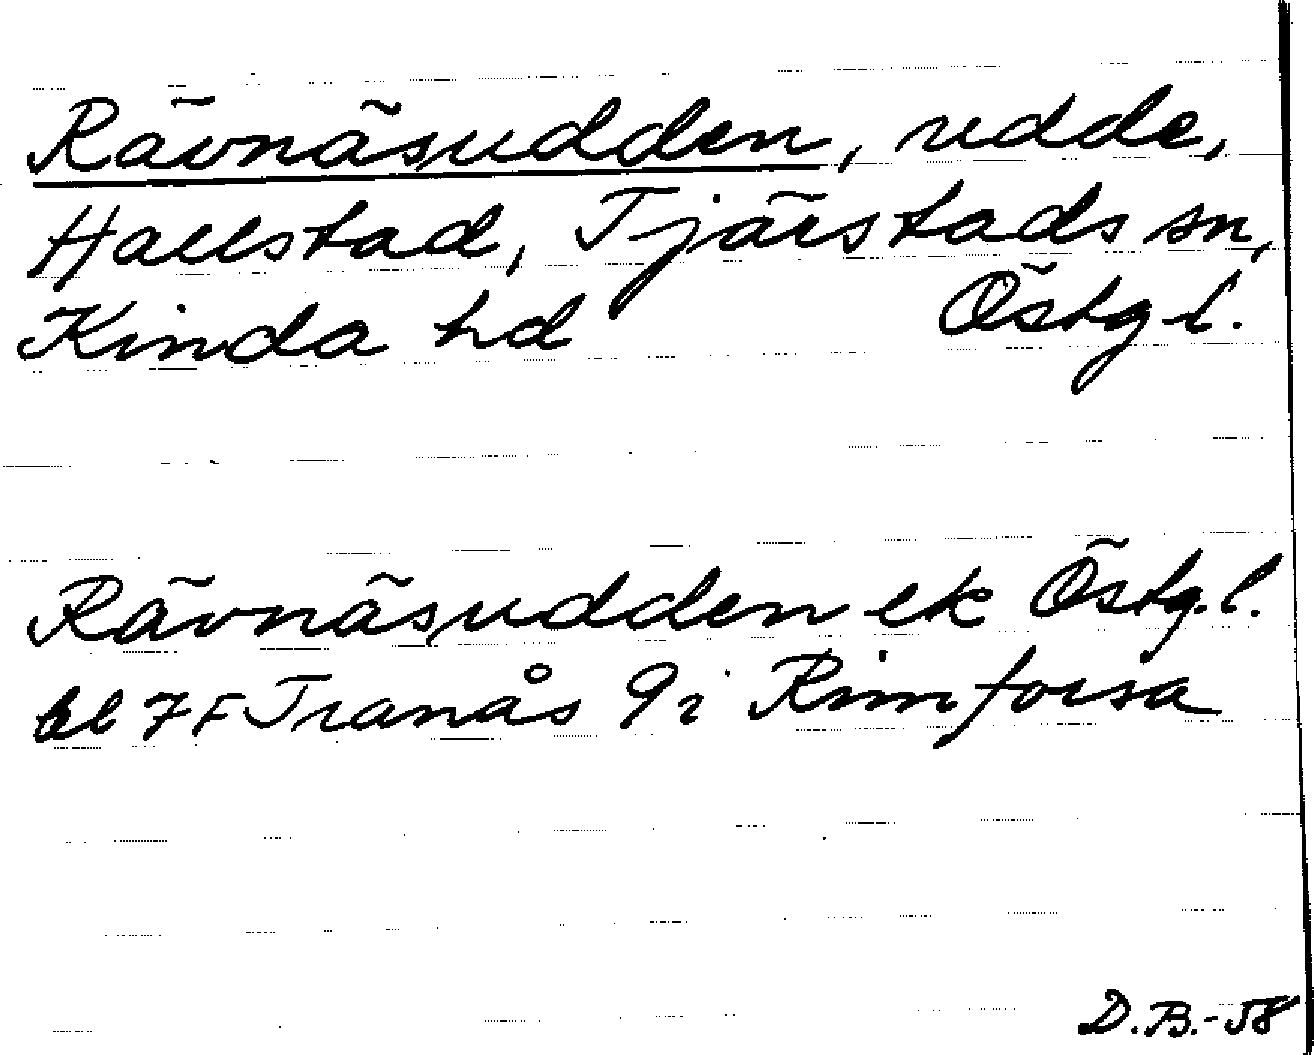 Rävnäsudden, udde,
Hallstad, Tjärstads sn,
Kinda hd Östg.l.
Rävnäsudden ek Östg.l.
bl 7F Tranås 9i Rimforsa
D.B.-58